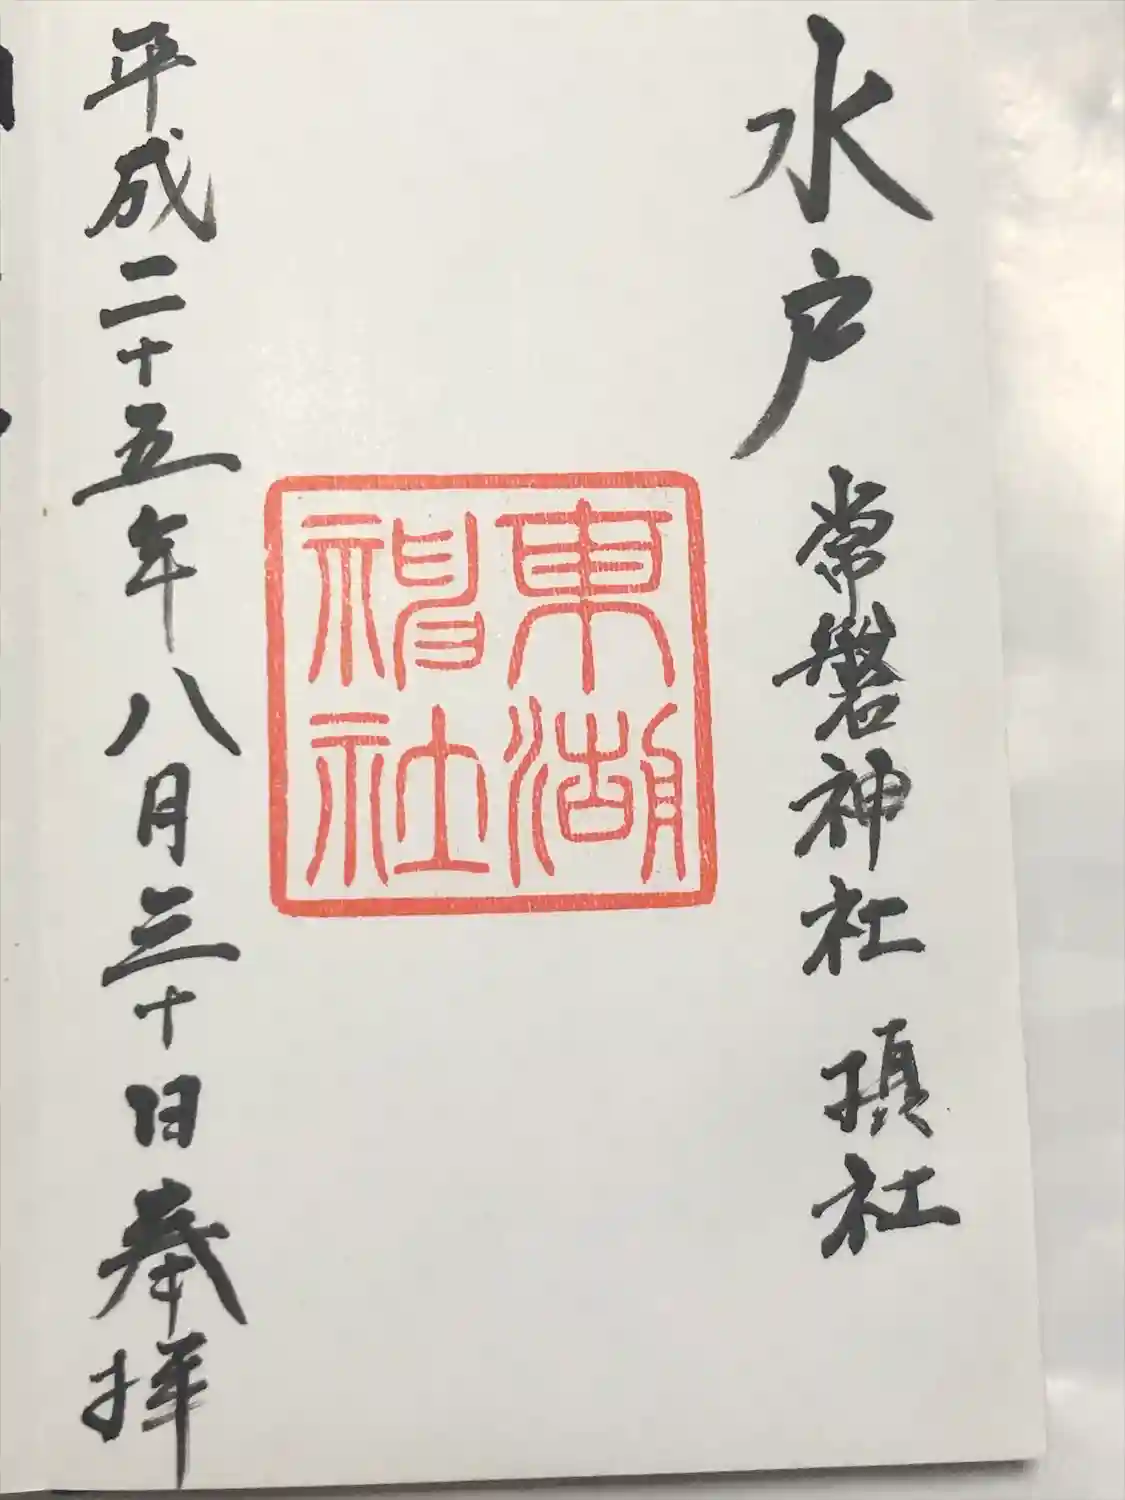 水戸常磐神社 摂社
東湖
神社
平成二十五年八月三十日奉拝